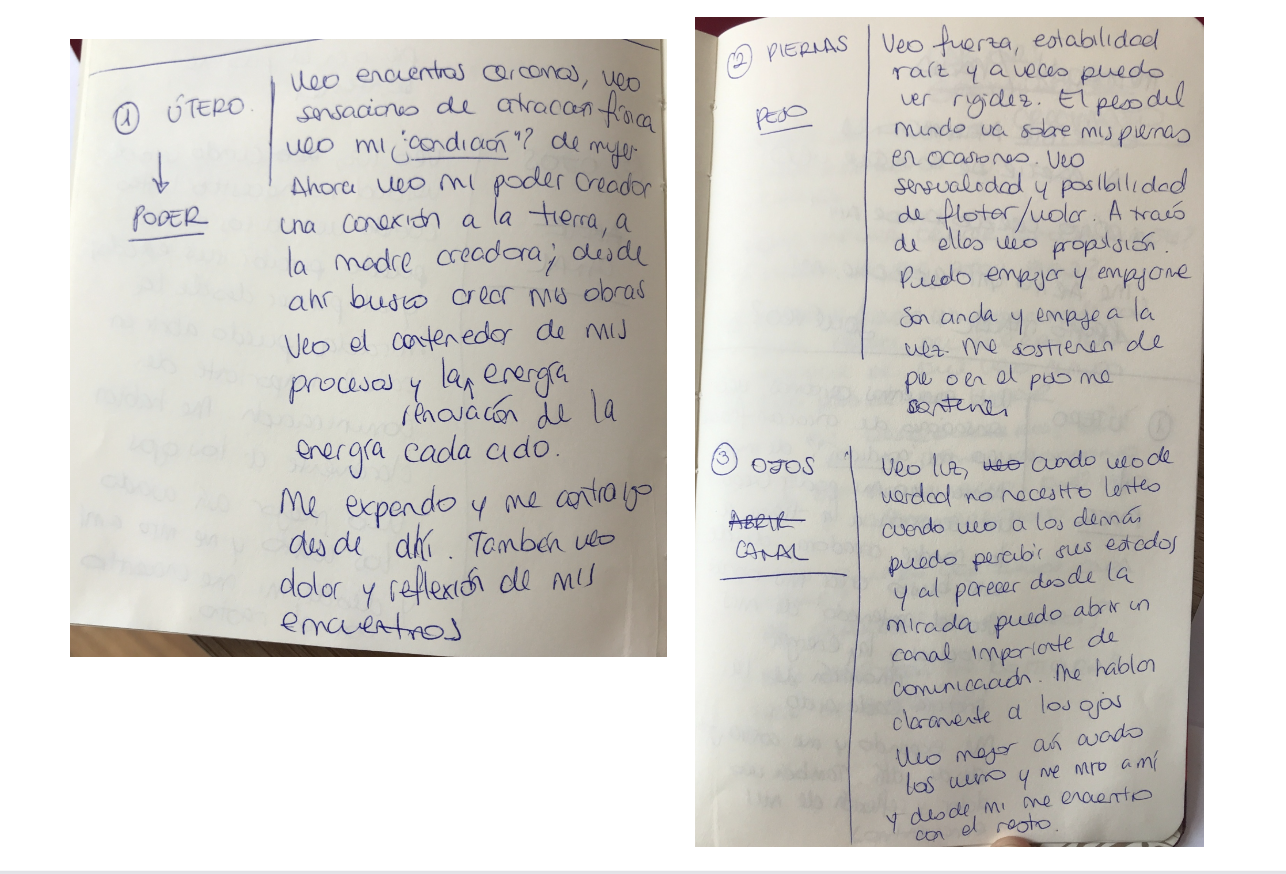 ① ÚTERO.
↓
PODER
Veo encuentros cercanos, veo
sensaciones de atracción física
veo mi ¿condición"? de mujer.
Ahora veo mi poder creador
una conexión a la tierra, a
la madre creadora; desde
ahí busco crear mis obras
Veo el contenedor de mis
procesos y la energía
renovación de la
energía cada ciclo.
Me expando y me contraigo
desde ahí. También veo
dolor y reflexión de mis
encuentros
② PIERNAS
PESO
Veo fuerza, estabilidad
raíz y a veces puedo
ver rigidez. El peso del
mundo va sobre mis piernas
en ocasiones. Veo
sensualidad y posibilidad
de flotar/volar. A través
de ellas veo propulsión.
Puedo empujar y empujarme
Son ancla y empuje a la
vez. Me sostienen de
pie o en el piso me
sostienen
③ OJOS
ABRIR
CANAL
Veo luz, veo cuando veo de
verdad no necesito lentes
cuando veo a los demás
puedo percibir sus estados
y al parecer desde la
mirada puedo abrir un
canal importante de
comunicación. Me hablan
claramente a los ojos
Veo mejor aún cuando
los cierro y me miro a mí
y desde mi me encuentro
con el resto.